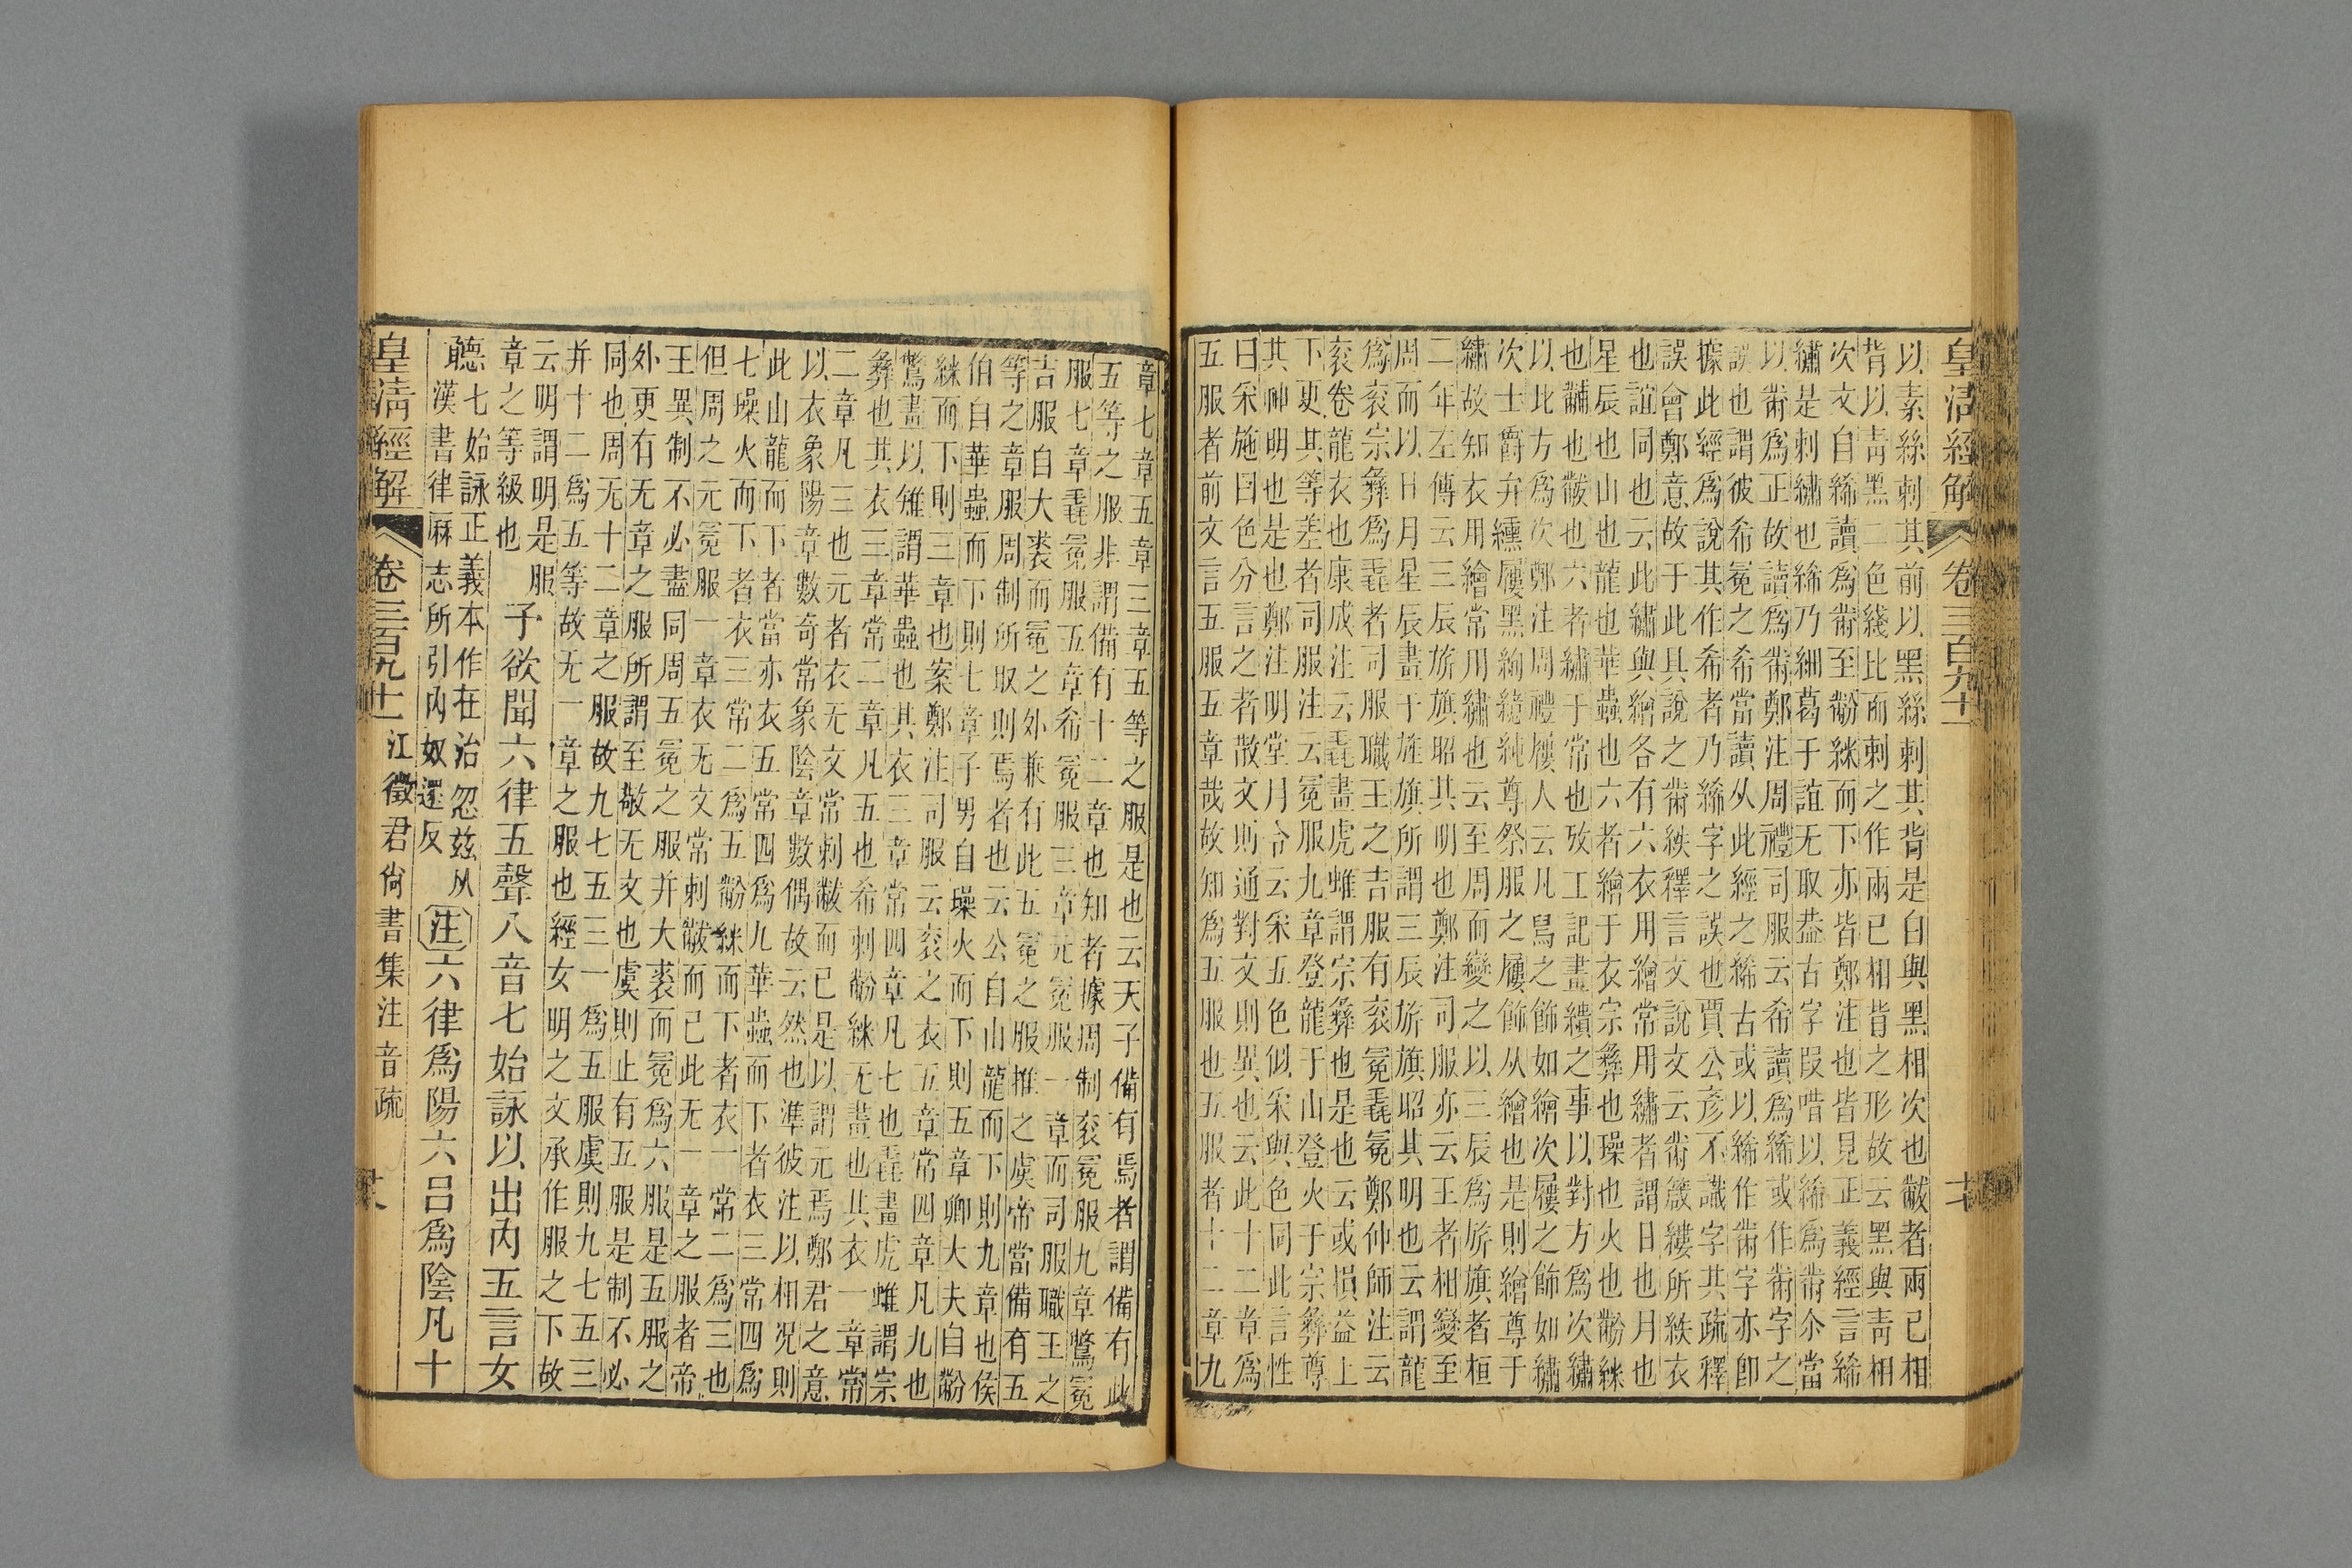 皇淸經解
卷三百九十二
以素絲刺其前以黑絲刺其背是白與黑相次也黻者兩己相
背以靑黑二色綫比而刺之作兩己相背之形故云黑與靑相
次文自絺讀爲黹至黺絲而下亦皆鄭注也皆見正義經言絺
繡是刺繡也絺乃細葛于誼无取葢古字叚唶以絺爲黹尒當
以黹爲正故讀爲黹鄭注周禮司服云希讀爲絺或作黹字之
誤也謂彼希冕之希當讀从此經之絺古或以絺作黹字亦卽
據此經爲說其作希者乃絺字之誤也賈公彥不識字其疏釋
誤會鄭意故于此具說之黹紩釋言文說文云黹箴縷所紩衣
也誼同也云此繡與繪各有六衣用繪常用繡者謂日也月也
星辰也山也龍也華蟲也六者繪于衣宗彝也璪也火也黺絲
也黼也黻也六者繡于常也攷工記畫繢之事以對方爲次繡
以此方爲次鄭注周禮屨人云凡舄之飾如繪次屨之飾如繡
次士爵弁纁屨黑絇繶純尊祭服之屨飾从繪也是則繪尊于
繡故知衣用繪常用繡也云至周而變之以三辰爲旂旗者桓
二年左傳云三辰旂旗昭其明也鄭注司服亦云王者相變至
周而以日月星辰畫于旌旗所謂三辰旂旗昭其明也云謂龍
爲衮宗彝爲毳者司服職王之吉服有衮冕毳冕鄭仲師注云
衮卷龍衣也康成注云毳畫虎蜼謂宗彝也是也云或損益上
下更其等差者司服注云冕服九章登龍于山登火于宗彝尊
其神明也是也鄭注明堂月令云采五色似采與色同此言性
曰采施曰色分言之者散文則通對文則異也云此十二章爲
五服者前文言五服五章哉故知爲五服也五服者十二章九
章七章五章三章五等之服是也云天子備有焉者謂備有此
五等之服非謂備有十二章也知者據周制衮冕服九章鷩冕
服七章毳冕服五章希冕服三章元冕服一章而司服職王之
吉服自大裘而冕之外兼有此五冕之服推之虞帝當備有五
等之章服周制所取則焉者也云公自山龍而下則九章也侯
伯自華蟲而下則七章子男自璪火而下則五章卿大夫自黺
絲而下則三章也案鄭注司服云衮之衣五章常四章凡九也
鷩畫以雉謂華蟲也其衣三章常四章凡七也毳畫虎蜼謂宗
彝也其衣三章常二章凡五也希刺黺絲无畫也其衣一章常
二章凡三也元者衣无文常刺黻而已是以謂元焉鄭君之意
以衣象陽章數奇常象陰章數偶故云然也準彼注以相況則
此山龍而下者當亦衣五常四爲九華蟲而下者衣三常四爲
七璪火而下者衣三常二爲五黺絲而下者衣一常二爲三也
但周之元冕服一章衣无文常刺黻而已此无一章之服者帝
王異制不必盡同周五冕之服并大裘而冕爲六服是五服之
外更有无章之服所謂至敬无文也虞則止有五服是制不必
同也周无十二章之服故九七五三一爲五服虞則九七五三
并十二爲五等故无一章之服也經女明之文承作服之下故
云明謂明是服
章之等級也
子欲聞六律五聲八音七始詠以出內五言女
聽七始詠正義本作在治忽茲从
漢書律厤志所引內奴還反
注六律爲陽六呂爲陰凡十
皇淸經解
卷三百九十二
江徵君尙書集注音疏